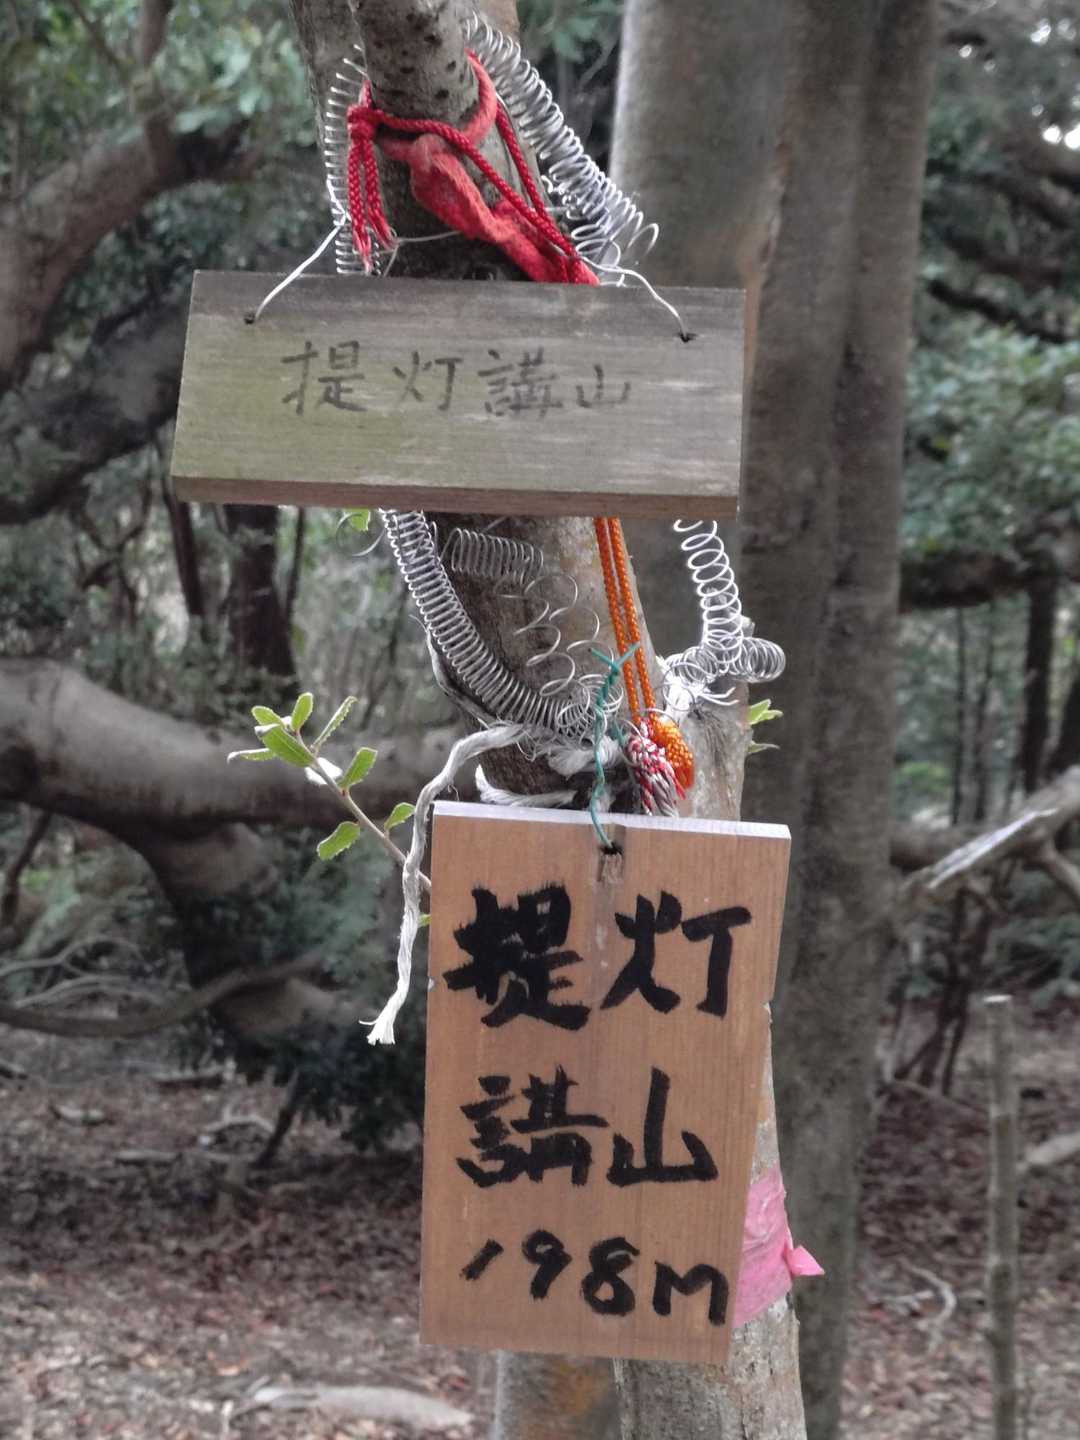 提灯講山
提灯
講山
198M